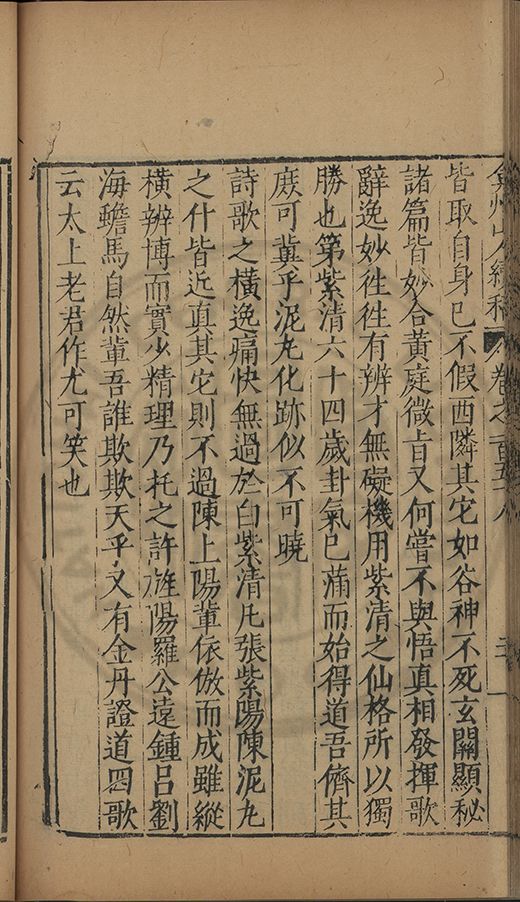 弇州山人續稿 卷之一百五十八
皆取自身已不假西隣其它如谷神不死玄關顯秘
諸篇皆妙合黄庭微旨又何嘗不與悟真相發揮歌
辭逸妙徃徃有辨才無礙機用紫清之仙格所以獨
勝也第紫清六十四歲卦氣已滿而始得道吾儕其
庶可冀乎泥丸化跡似不可曉
詩歌之橫逸痛快無過於白紫清凡張紫陽陳泥丸
之什皆近真其它則不過陳上陽軰依倣而成雖縱
橫辨博而實少精理乃托之許旌陽羅公遠鍾呂劉
海蟾馬自然軰吾誰欺欺天乎又有金丹證道四歌
云太上老君作尤可笑也